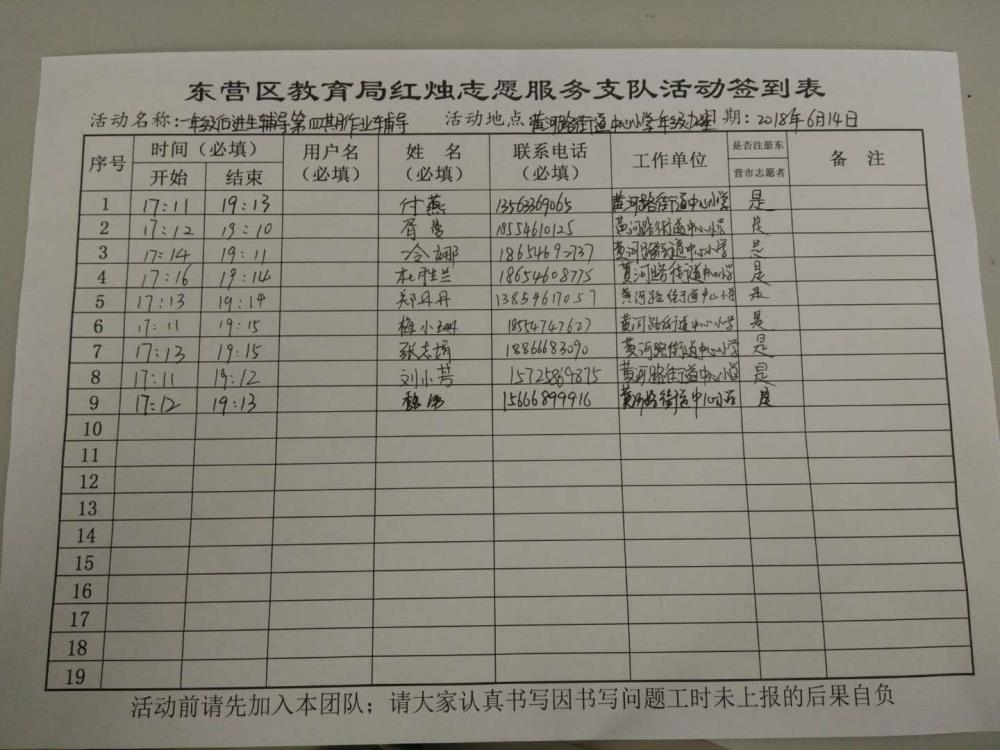 东营区教育局红烛志愿服务支队活动签到表
活动名称:一年级后进生辅导第四期作业辅导 活动地点:黄河路街道中心小学一年级办公室 日期:2018年6月14日
序号 时间(必填) 用户名(必填) 姓名(必填) 联系电话(必填) 工作单位 是否注册东营市志愿者 备注
开始 结束
1 17:11 19:13 付燕 13563369065 黄河路街道中心小学 是
2 17:12 19:10 胥曼 18554610125 黄河路街道中心小学 是
3 17:14 19:11 冷娜 18654692737 黄河路街道中心小学 是
4 17:16 19:14 杜胜兰 18654608775 黄河路街道中心小学 是
5 17:13 19:14 郑丹丹 13854617057 黄河路街道中心小学 是
6 17:11 19:15 梅小珊 18554747627 黄河路街道中心小学 是
7 17:13 19:15 张志娟 18866683090 黄河路街道中心小学 是
8 17:11 19:12 刘小芳 15725869875 黄河路街道中心小学 是
9 17:12 19:13 15666899916 黄河路街道中心小学 是
10
11
12
13
14
15
16
17
18
19
活动前请先加入本团队;请大家认真书写因书写问题工时未上报的后果自负